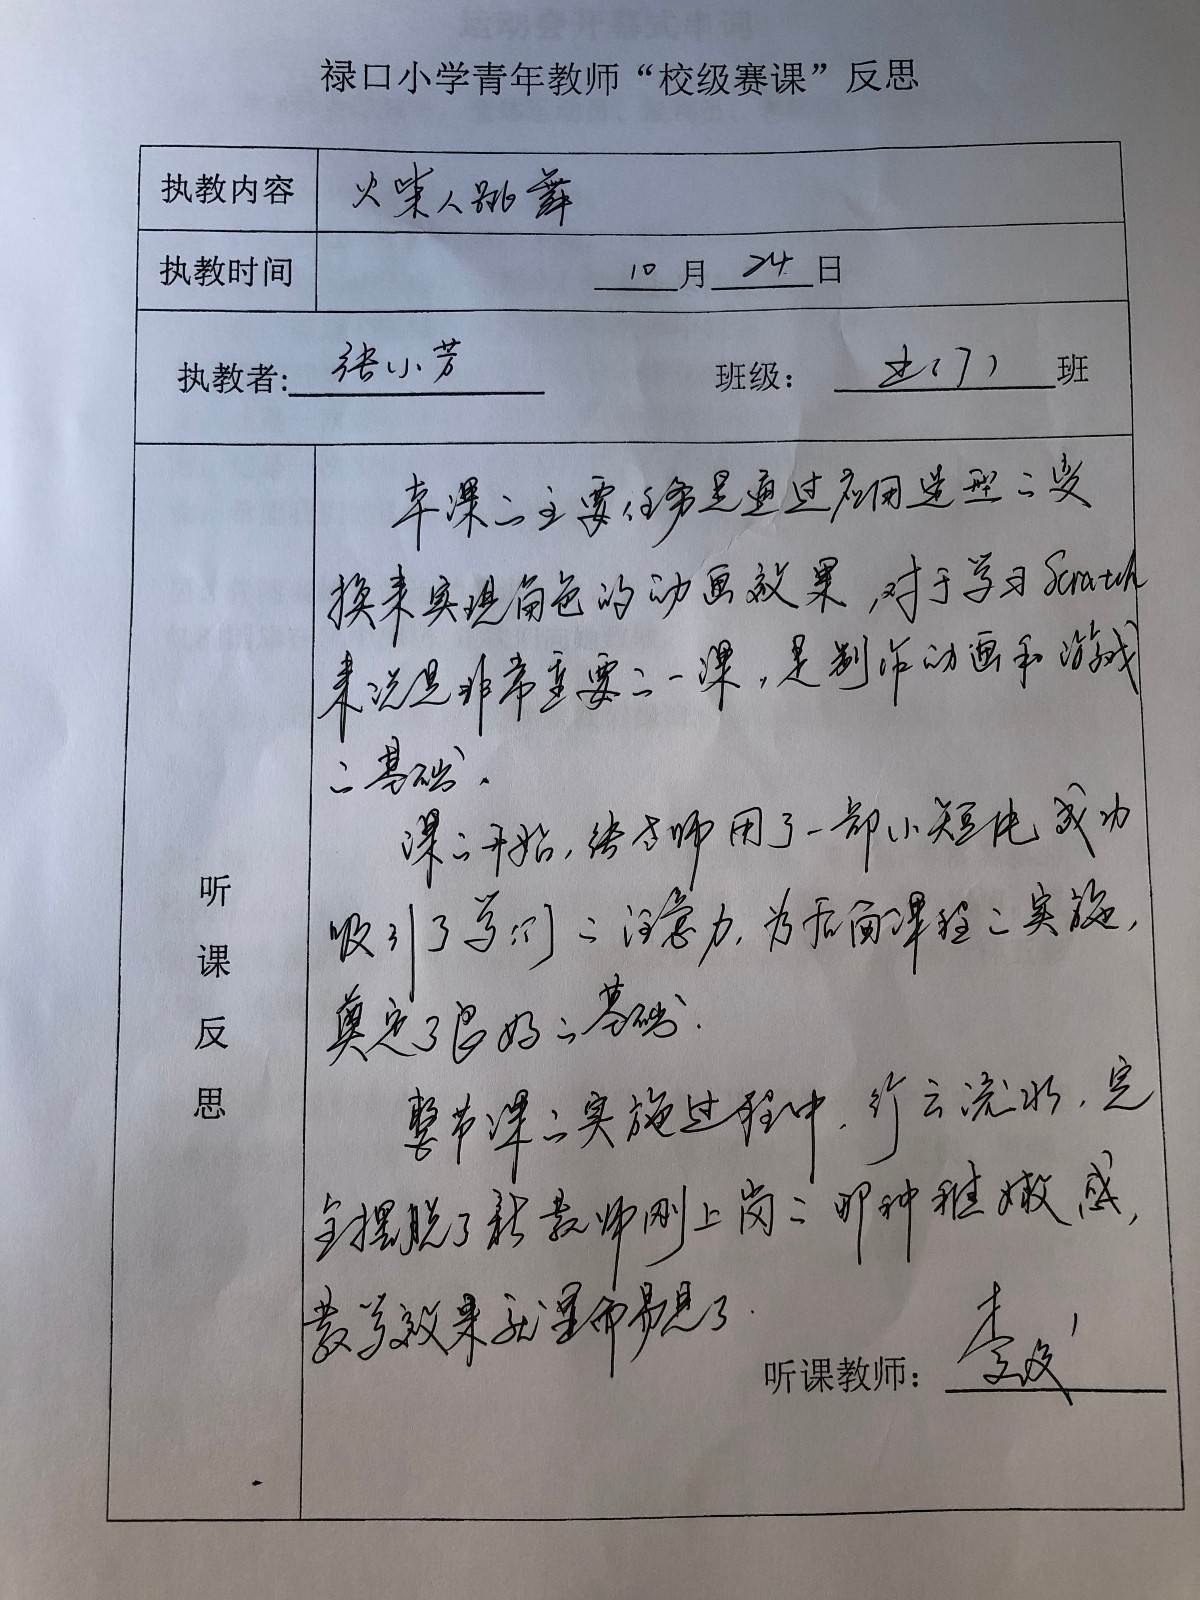 禄口小学青年教师“校级赛课”反思
执教内容 火柴人跳舞
执教时间 10月24日
执教者: 张小芳 班级： 五（7）班
听课反思
本课的主要任务是通过应用造型的变
换来实现角色的动画效果，对于学习Scratch
来说是非常重要的一课，是制作动画和游戏
的基础。
课的开始，张老师用了一部小短片成功
吸引了学生们的注意力，为后面课程的实施，
奠定了良好的基础。
整节课的实施过程中，行云流水，完
全摆脱了新教师刚上岗的那种稚嫩感，
教学效果就显而易见了.
听课教师： 李